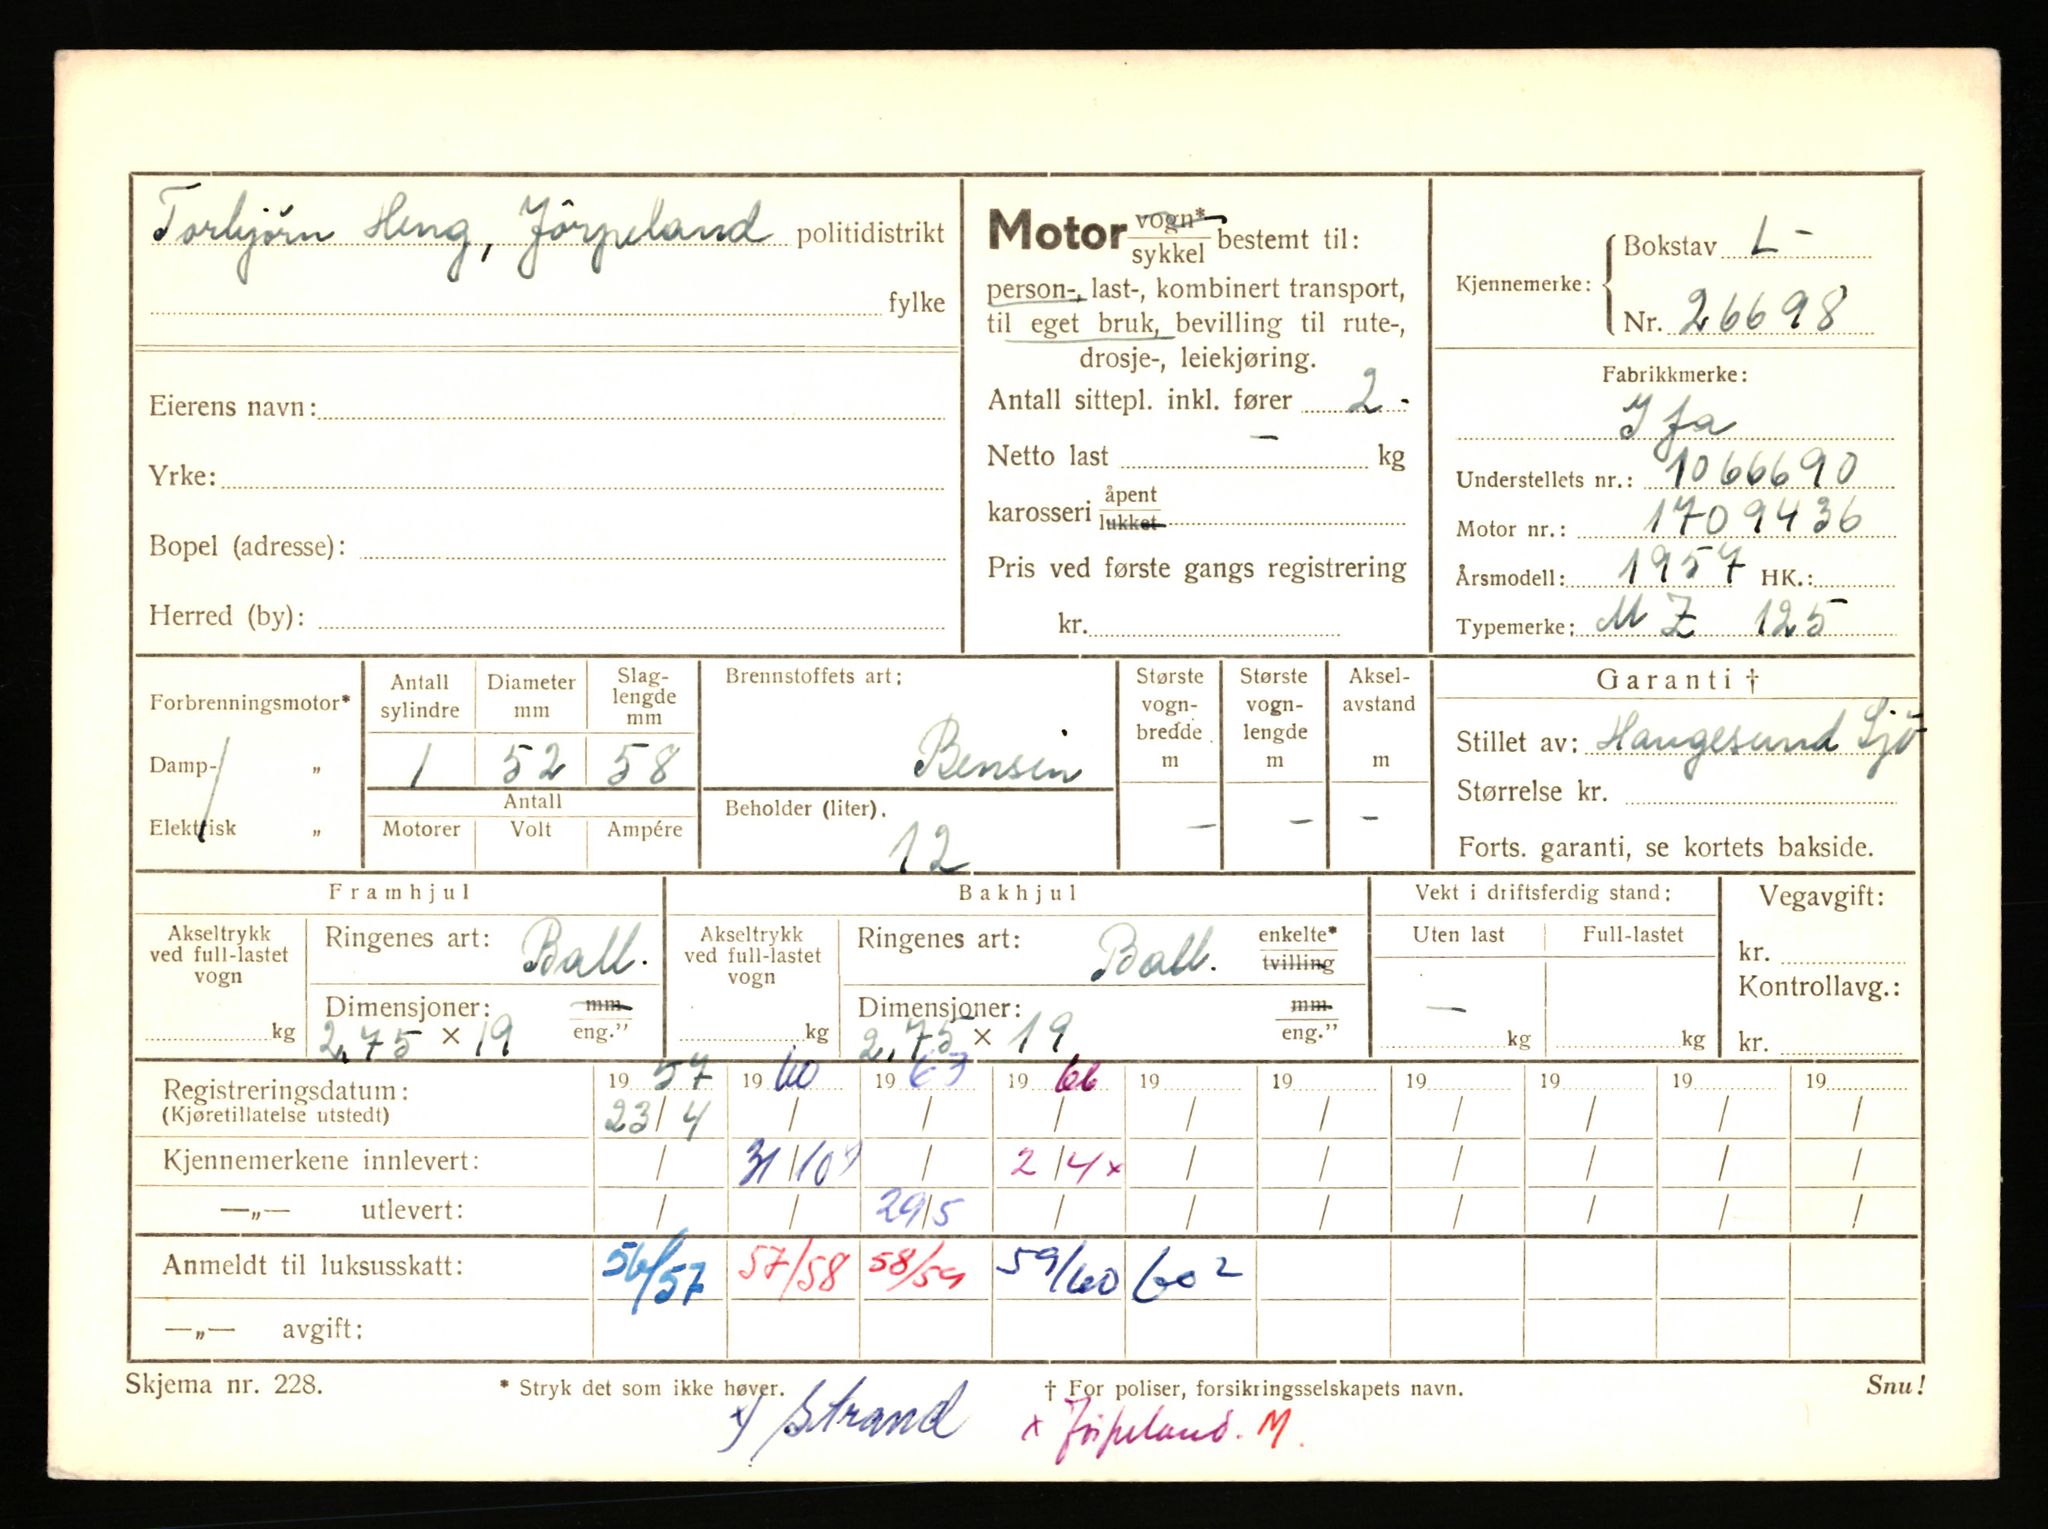 Torbjörn Heng, Jörpeland politidistrikt
fylke
Eierens navn:
Yrke:
Bopel (adresse):
Herred (by):
Motor vogn* / sykkel bestemt til:
person-, last-, kombinert transport,
til eget bruk, bevilling til rute-,
drosje-, leiekjøring.
Antall sittepl. inkl. fører 2-
Netto last — kg
karosseri åpent / lukket
Pris ved første gangs registrering
kr.
Kjennemerke: Bokstav L-
Nr. 26698
Fabrikkmerke:
Ifa
Understellets nr.: 1066690
Motor nr.: 1709436
Årsmodell: 1957 HK.:
Typemerke: MZ 125
Forbrenningsmotor*
Damp- „
Elektrisk „
Antall sylindre 1
Diameter mm 52
Slag-lengde mm 58
Antall
Motorer Volt Ampére
Brennstoffets art:
Bensin
Beholder (liter).
12
Største vogn-bredde m —
Største vogn-lengde m —
Aksel-avstand m —
Garanti †
Stillet av: Haugesund Sjö
Størrelse kr.
Forts. garanti, se kortets bakside.
Framhjul
Akseltrykk
ved full-lastet
vogn
kg
Ringenes art: Ball.
Dimensjoner: mm / eng."
2,75 × 19
Bakhjul
Akseltrykk
ved full-lastet
vogn
kg
Ringenes art: Ball. enkelte* / tvilling
Dimensjoner: mm / eng."
2,75 × 19
Vekt i driftsferdig stand:
Uten last Full-lastet
— kg kg
Vegavgift:
kr.
Kontrollavg.:
kr.
Registreringsdatum: 1957 1960 1963 1966 19 19 19 19 19 19
(Kjøretillatelse utstedt) 23/4 / / / / / / / / /
Kjennemerkene innlevert: / 31/10 / 2/4x / / / / / /
—„— utlevert: / / 29/5 / / / / / / /
Anmeldt til luksusskatt: 56/57 57/58 58/59 59/60 60 2
—„— avgift:
Skjema nr. 228. * Stryk det som ikke høver. † For poliser, forsikringsselskapets navn. Snu!
x) Strand x Jörpeland. M.